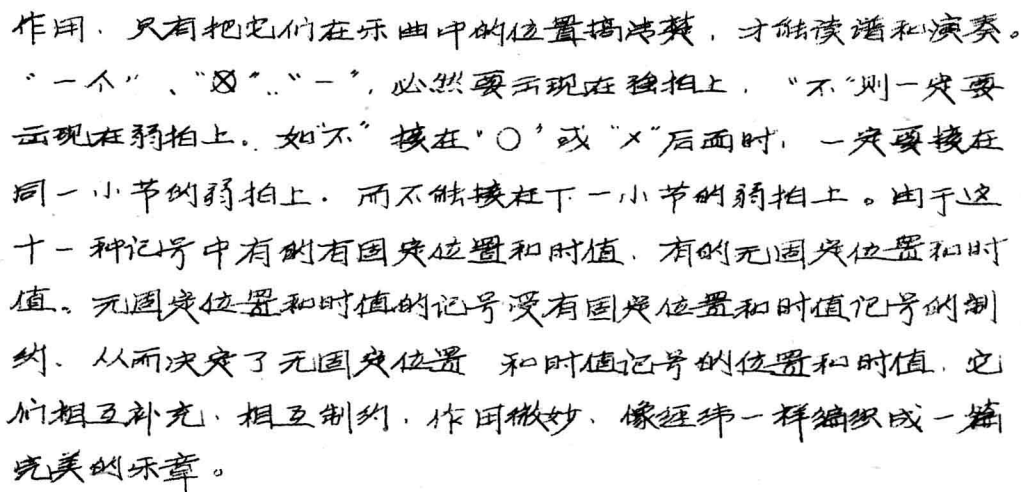 作用，只有把它们在乐曲中的位置搞清楚，才能读谱和演奏。
“一个”、“⊠”、“一”，必然要出现在强拍上，“不”则一定要
出现在弱拍上。如“不”接在“○”或“×”后面时，一定要接在
同一小节的弱拍上．而不能接在下一小节的弱拍上。由于这
十一种记号中有的有固定位置和时值，有的无固定位置和时
值。无固定位置和时值的记号受有固定位置和时值记号的制
约、从而决定了无固定位置 和时值记号的位置和时值，它
们相互补充，相互制约，作用微妙、像经纬一样编织成一篇
完美的乐章。